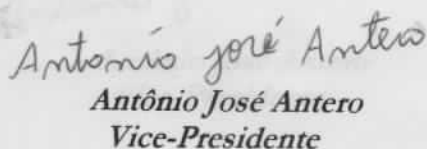 Antonio José Antero
Antônio José Antero
Vice-Presidente